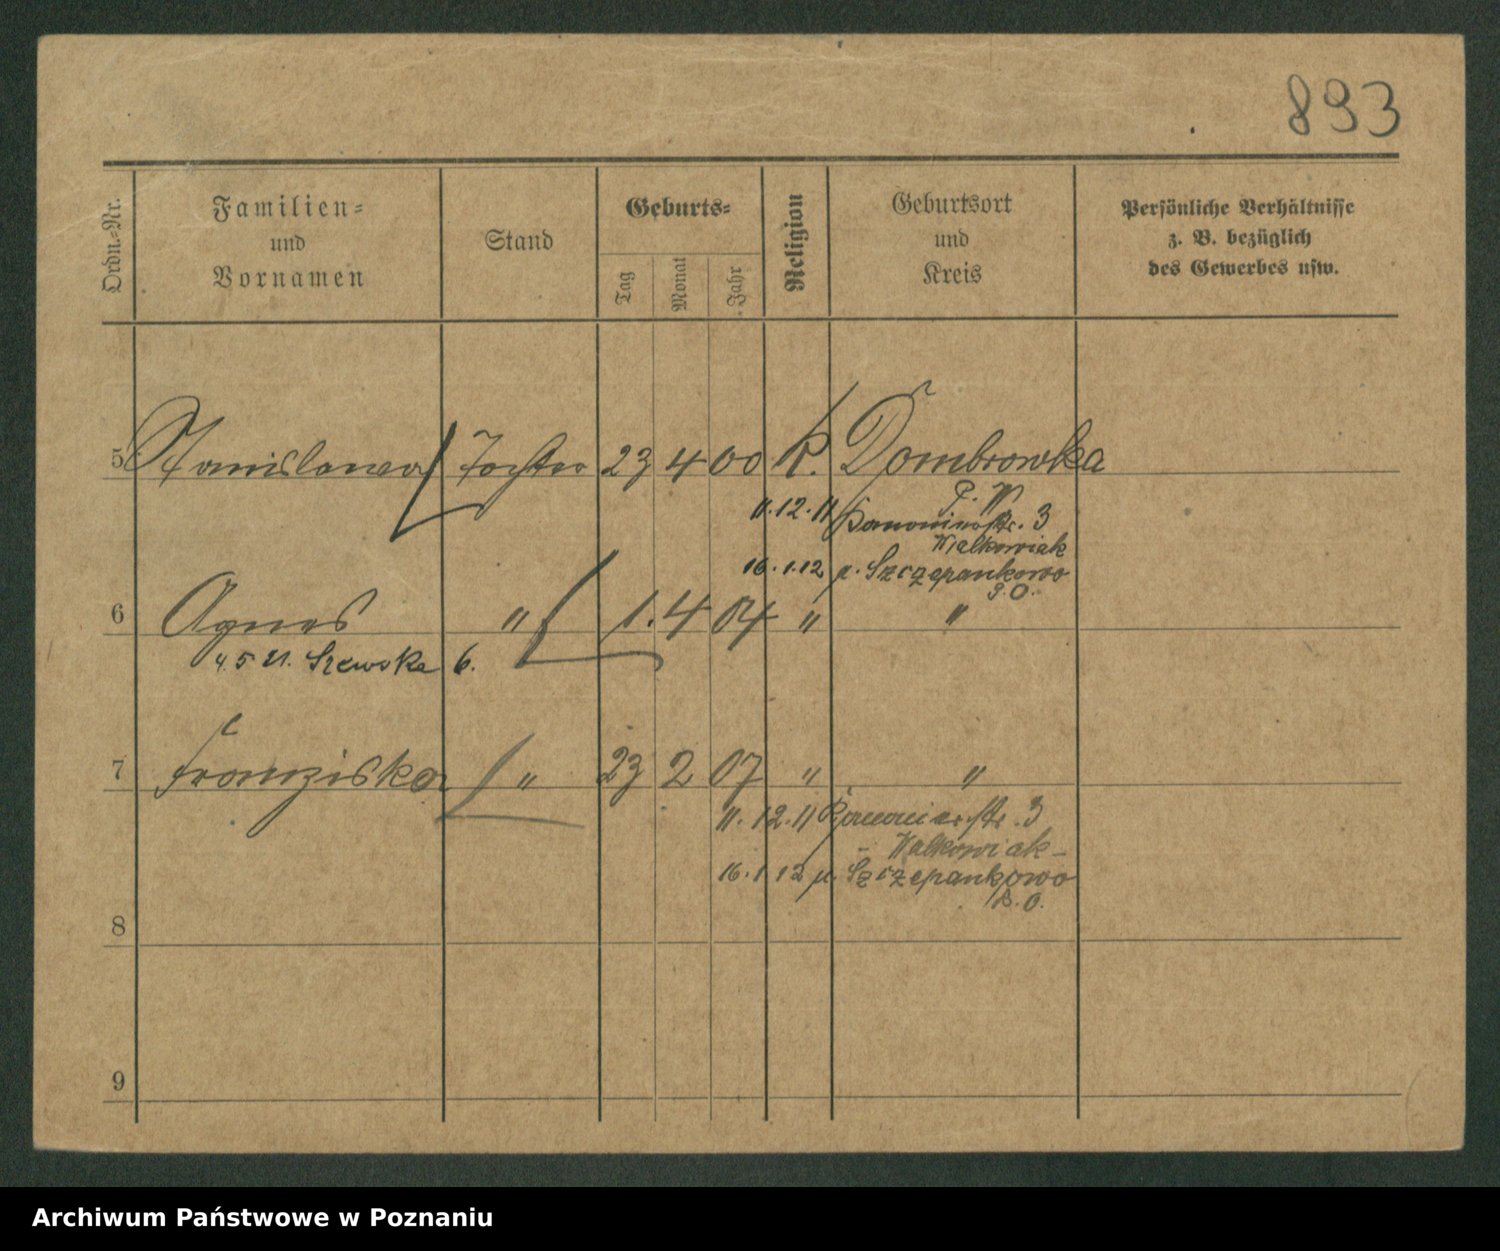 893
Ordn.-Nr.
Familien-
und
Vornamen
Stand
Geburts-
Tag
Monat
Jahr
Religion
Geburtsort
und
Kreis
Persönliche Verhältnisse
z. B. bezüglich
des Gewerbes usw.
5 Stanislawa Tochter 23 4 00 K. Dombrowka
P. W
11.12.11 str. 3
Walkowiak
16.1.12 Szczepankowo
P.O.
6 Agnes " 1. 4 04 " "
4.5 21. Szewska 6.
7 Franziska " 23 2 07 " "
11.12.11 str. 3
Walkowiak
16.1.12 Szczepankowo
P.O.
8
9
Archiwum Państwowe w Poznaniu